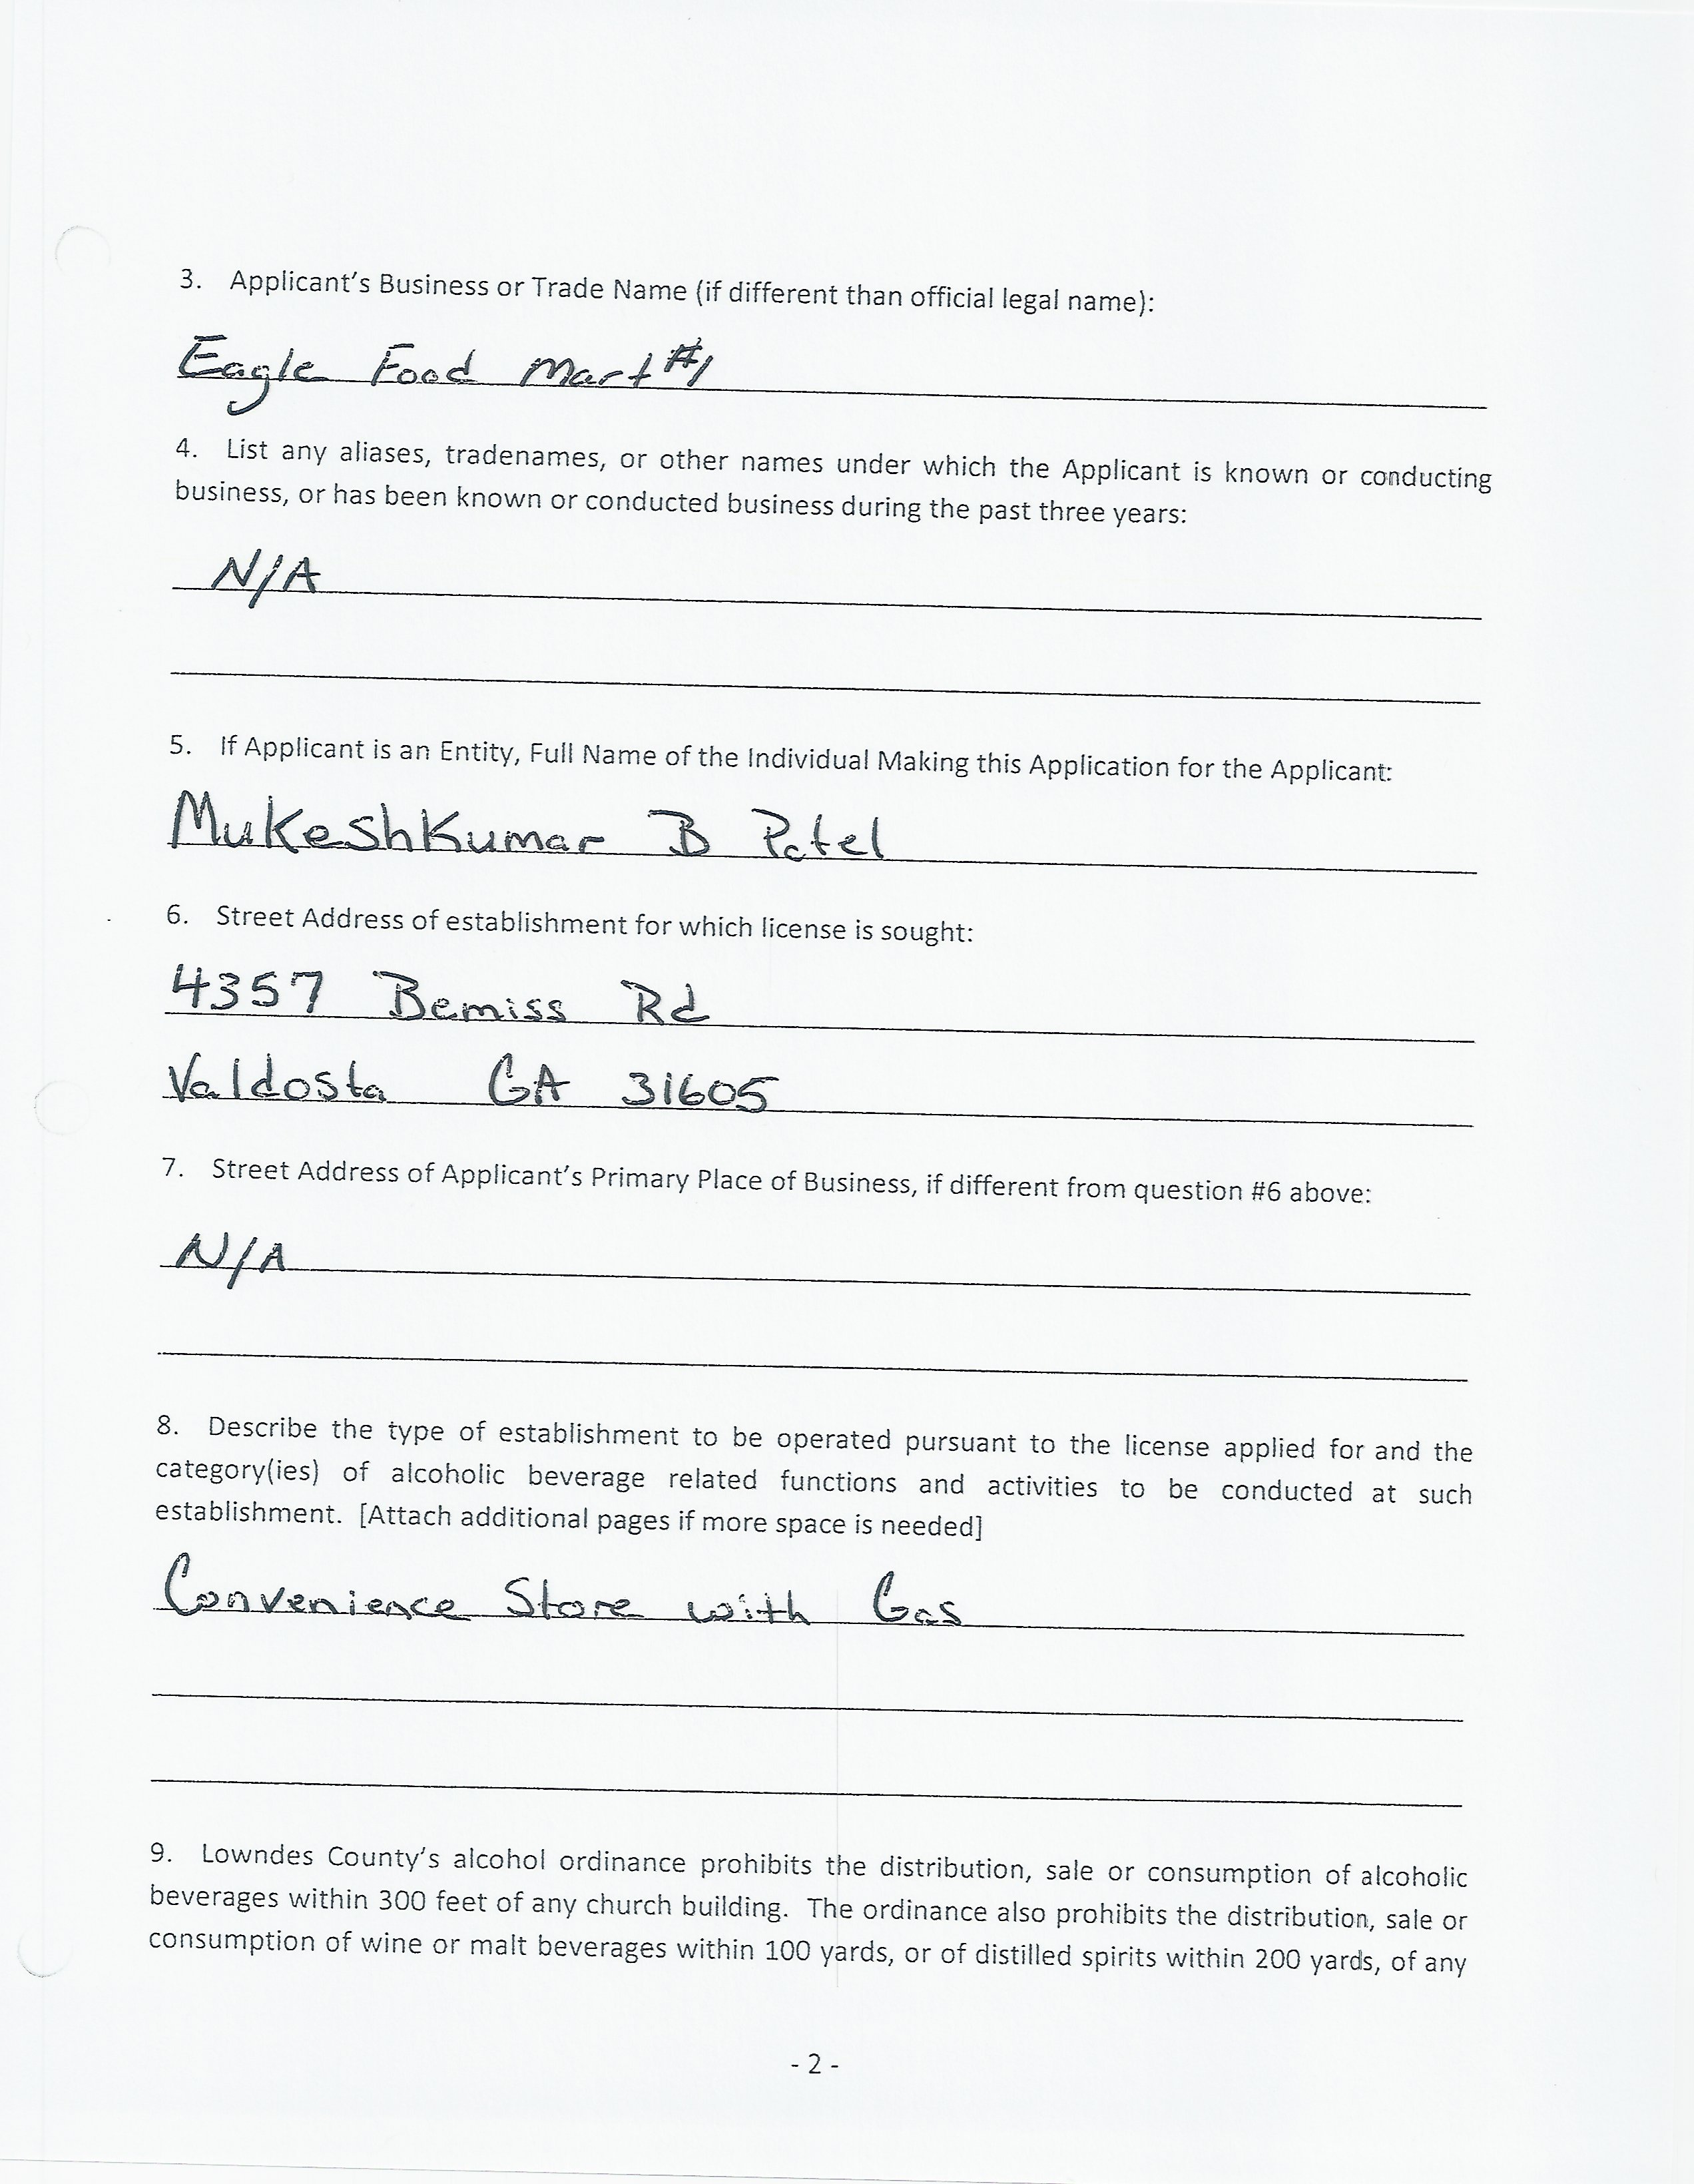 3. Applicant's Business or Trade Name (if different than official legal name):
Eagle Food Mart #1
4. List any aliases, tradenames, or other names under which the Applicant is known or conducting
business, or has been known or conducted business during the past three years:
N/A
5. If Applicant is an Entity, Full Name of the Individual Making this Application for the Applicant:
MukeshKumar B Patel
6. Street Address of establishment for which license is sought:
4357 Bemiss Rd
Valdosta GA 31605
7. Street Address of Applicant's Primary Place of Business, if different from question #6 above:
N/A
8. Describe the type of establishment to be operated pursuant to the license applied for and the
category(ies) of alcoholic beverage related functions and activities to be conducted at such
establishment. [Attach additional pages if more space is needed]
Convenience Store with Gas
9. Lowndes County's alcohol ordinance prohibits the distribution, sale or consumption of alcoholic
beverages within 300 feet of any church building. The ordinance also prohibits the distribution, sale or
consumption of wine or malt beverages within 100 yards, or of distilled spirits within 200 yards, of any
- 2 -